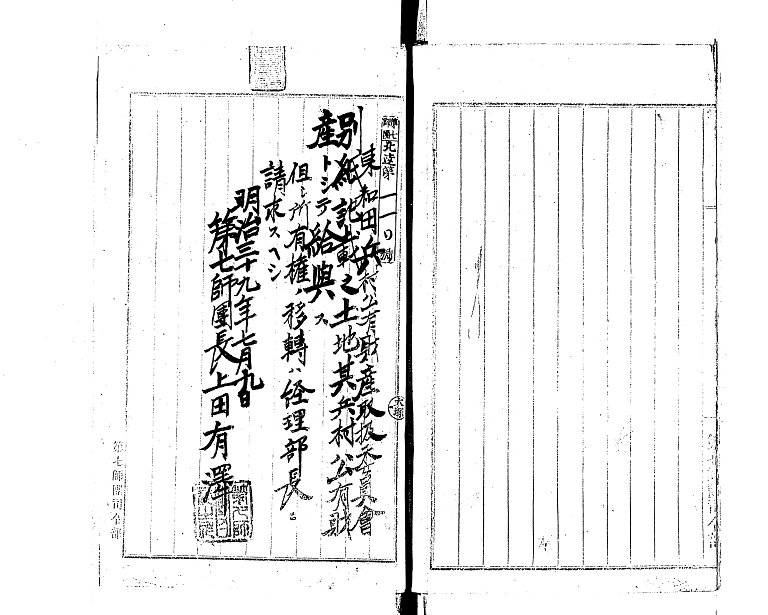 第七師團北達第一一〇號
東和田兵村公有財産取扱委員會
別紙記載之土地其兵村公有財
産トシテ給與ス
但シ所有權ノ移轉ハ経理部長ニ
請求スヘシ
明治三十九年七月九日
第七師團長上田有澤
第七師團司令部